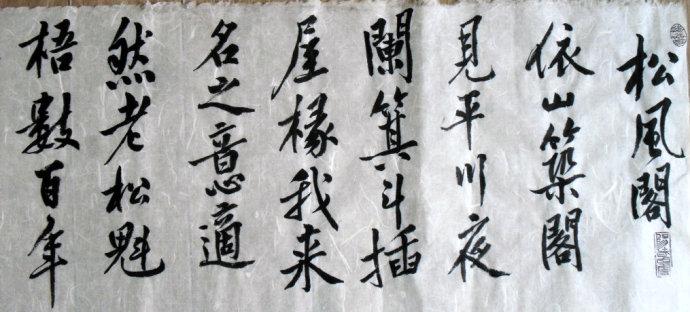 松風閣
依山築閣
見平川夜
闌箕斗插
屋椽我来
名之意適
然老松魁
梧數百年